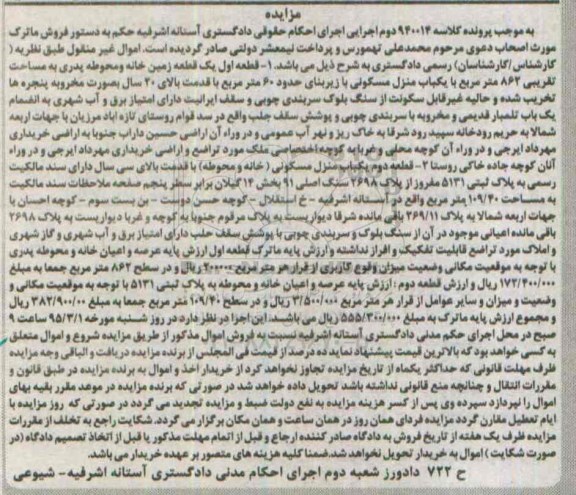 مزایده
به موجب پرونده کلاسه ۹۴۰۰۱۴ دوم اجرایی اجرای احکام حقوقی دادگستری آستانه اشرفیه حکم به دستور فروش ماترک
مورث اصحاب دعوی مرحوم محمدعلی تهمورس و پرداخت نیمعشر دولتی صادر گردیده است. اموال غیر منقول طبق نظریه (
کارشناس /کارشناسان) رسمی دادگستری به شرح ذیل می باشد. ۱- قطعه اول یک قطعه زمین خانه ومحوطه پدری به مساحت
تقریبی ۸۶۲ متر مربع با یکباب منزل مسکونی با زیربنای حدود ۶۰ متر مربع با قدمت بالای ۲۰ سال بصورت مخروبه پنجره ها
تخریب شده و حالیه غیرقابل سکونت از سنگ بلوک سربندی چوبی و سقف ایرانیت دارای امتیاز برق و آب شهری به انضمام
یک باب تلمبار قدیمی و مخروبه با سربندی چوبی و پوشش سقف حلب واقع در سد قوام روستای تازه اباد مرزیان با جهات اربعه
شمالا به حریم رودخانه سپید رود شرقا به خاک ریز و نهر آب عمومی و در وراء آن اراضی حسین داراب جنوبا به اراضی خریداری
مهرداد ایرجی و در وراء آن کوچه محلی و غربا به کوچه اختصاصی ملک مورد تراضع و اراضی خریداری مهرداد ایرجی و در وراء
آنان کوچه جاده خاکی روستا ۲- قطعه دوم یکباب منزل مسکونی (خانه و محوطه) با قدمت بالای سی سال دارای سند مالکیت
رسمی به پلاک ثبتی ۵۱۳۱ مفروز از پلاک ۲۶۹۸ سنگ اصلی ۹۱ بخش ۱۴ گیلان برابر سطر پنجم صفحه ملاحظات سند مالکیت
به مساحت ۱۰۹/۴۰ متر مربع واقع در آستانه اشرفیه - خ استقلال - کوچه حسن دوست - بن بست سوم - کوچه احسان با
جهات اربعه شمالا به پلاک ۲۶۹/۱۱ باقی مانده شرقا دیواریست به پلاک مرقوم جنوبا به کوچه و غربا دیواریست به پلاک ۲۶۹۸
باقی مانده اعیانی موجود در آن از سنگ بلوک و سربندی چوبی با پوشش سقف حلب دارای امتیاز برق و آب شهری و گاز شهری
و املاک مورد تراضع قابلیت تفکیک و افراز نداشته و ارزش پایه ماترک قطعه اول ارزش پایه عرصه و اعیان خانه و محوطه پدری
با توجه به موقعیت مکانی وضعیت میزان وقوع کاربری از قرار هر متر مربع ۲۰۰۰۰۰ ریال و در سطح ۸۶۲ متر مربع جمعا به مبلغ
۱۷۲/۴۰۰/۰۰۰ ریال و ارزش قطعه دوم : ارزش پایه عرصه و اعیان خانه و محوطه به پلاک ثبتی ۵۱۳۱ با توجه به موقعیت مکانی و
وضعیت و میزان و سایر عوامل از قرار هر متر مربع ۳/۵۰۰/۰۰۰ ریال و در سطح ۱۰۹/۴۰ متر مربع جمعا به مبلغ ۳۸۲/۹۰۰/۰۰ ریال
و مجموع ارزش پایه ماترک به مبلغ ۵۵۵/۳۰۰/۰۰۰ ریال می باشد. این اجرا در نظر دارد در روز شنبه مورخه ۹۵/۳/۱ ساعت ۹
صبح در محل اجرای حکم مدنی دادگستری آستانه اشرفیه نسبت به فروش اموال مذکور از طریق مزایده شروع و اموال متعلق
به کسی خواهد بود که بالاترین قیمت پیشنهاد نماید ده درصد از قیمت فی المجلس از برنده مزایده دریافت و الباقی وجه مزایده
ظرف مهلت قانونی که حداکثر یکماه از تاریخ مزایده تجاوز نخواهد کرد از خریدار اخذ و اموال به برنده مزایده در طبق قانون و
مقررات انتقال و چنانچه منع قانونی نداشته باشد تحویل داده خواهد شد. در صورتی که برنده مزایده در موعد مقرر بقیه بهای
اموال را نپردازد سپرده وی پس از کسر هزینه مزایده به نفع دولت ضبط و مزایده تجدید می گردد در صورتی که روز مزایده با
ایام تعطیل مقارن گردد مزایده فردای همان روز در همان ساعت و همان مکان برگزار می گردد. شکایت راجع به تخلف از مقررات
مزایده ظرف یک هفته از تاریخ فروش به دادگاه صادر کننده ارجاع و قبل از اتمام مهلت مذکور یا قبل از اتخاذ تصمیم دادگاه (در
صورت شکایت) اموال به خریدار تحویل نخواهد شد.ضمنا کلیه هزینه های متصور بر عهده خریدار می باشد.
ح ۷۲۲ دادورز شعبه دوم اجرای احکام مدنی دادگستری آستانه اشرفیه- شیوعی